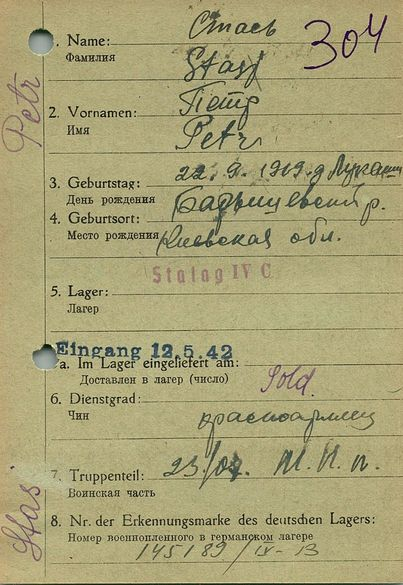 304
1. Name: Стась
Фамилия Stasj
2. Vornamen: Петр
Имя Petr
3. Geburtstag: 22. 9. 1919. д
День рождения
4. Geburtsort:
Место рождения Киевская обл.
Stalag IV C
5. Lager:
Лагер
Eingang 12.5.42
a. Im Lager eingeliefert am:
Доставлен в лагер (число)
6. Dienstgrad: Sold.
Чин красноармеец
7. Truppenteil:
Воинская часть
8. Nr. der Erkennungsmarke des deutschen Lagers:
Номер военнопленного в германском лагере
145189/IV-B
Petr
Stas